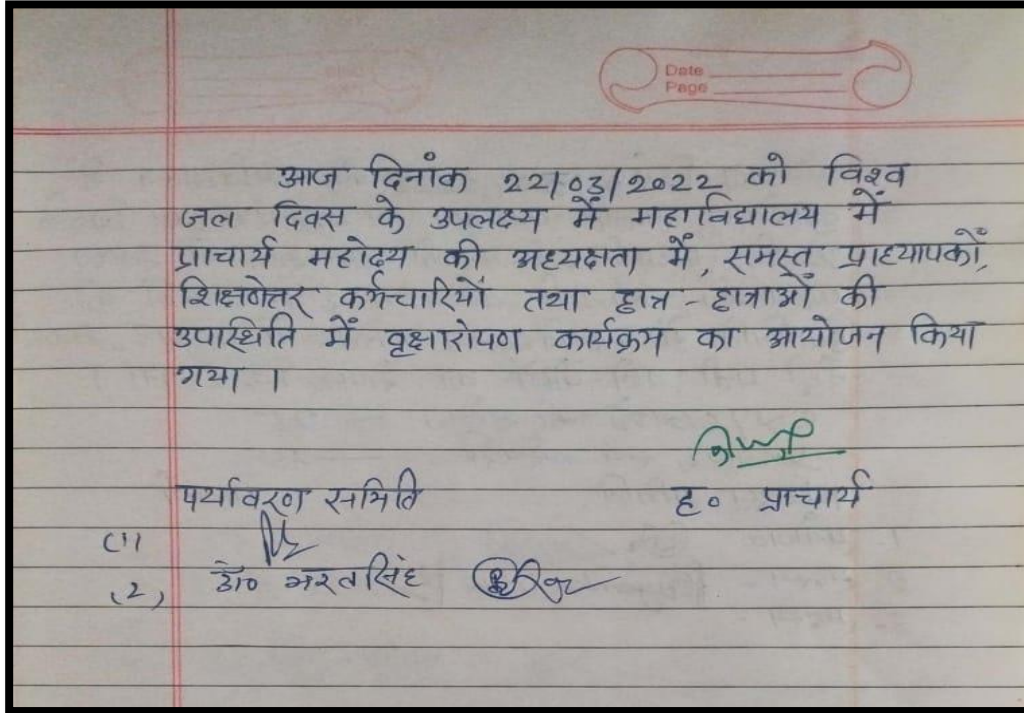 Date
Page
आज दिनांक 22/03/2022 को विश्व
जल दिवस के उपलक्ष्य में महाविद्यालय में
प्राचार्य महोदय की अध्यक्षता में, समस्त प्राध्यापकों,
शिक्षणेत्तर कर्मचारियों तथा छात्र - छात्राओं की
उपास्थिति में वृक्षारोपण कार्यक्रम का आयोजन किया
गया ।
ह० प्राचार्य
पर्यावरण समिति
(1)
(2) डॉ० भरतसिंह